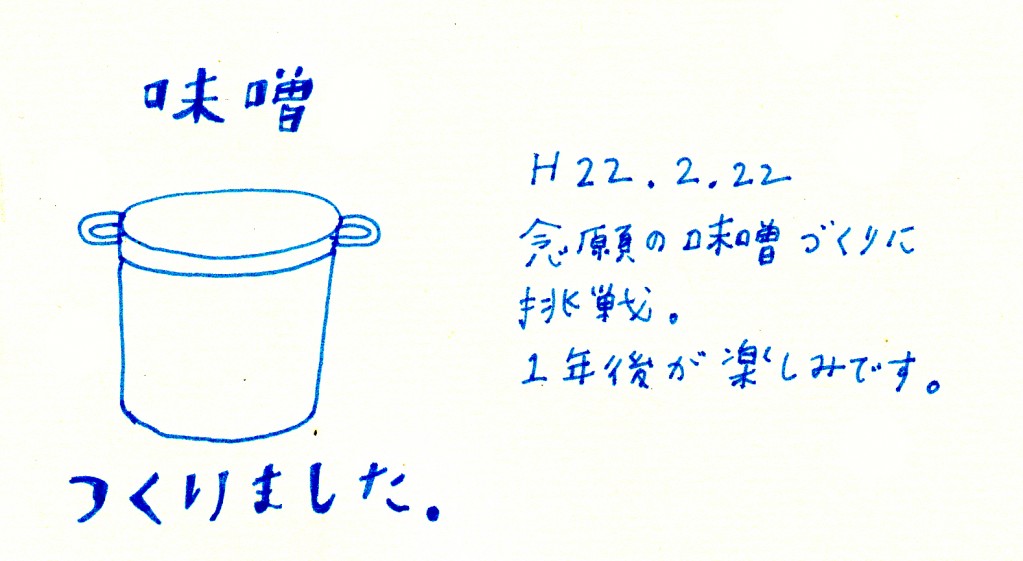 味噌
つくりました.
H22.2.22
念願の味噌づくりに
挑戦。
1年後が楽しみです。